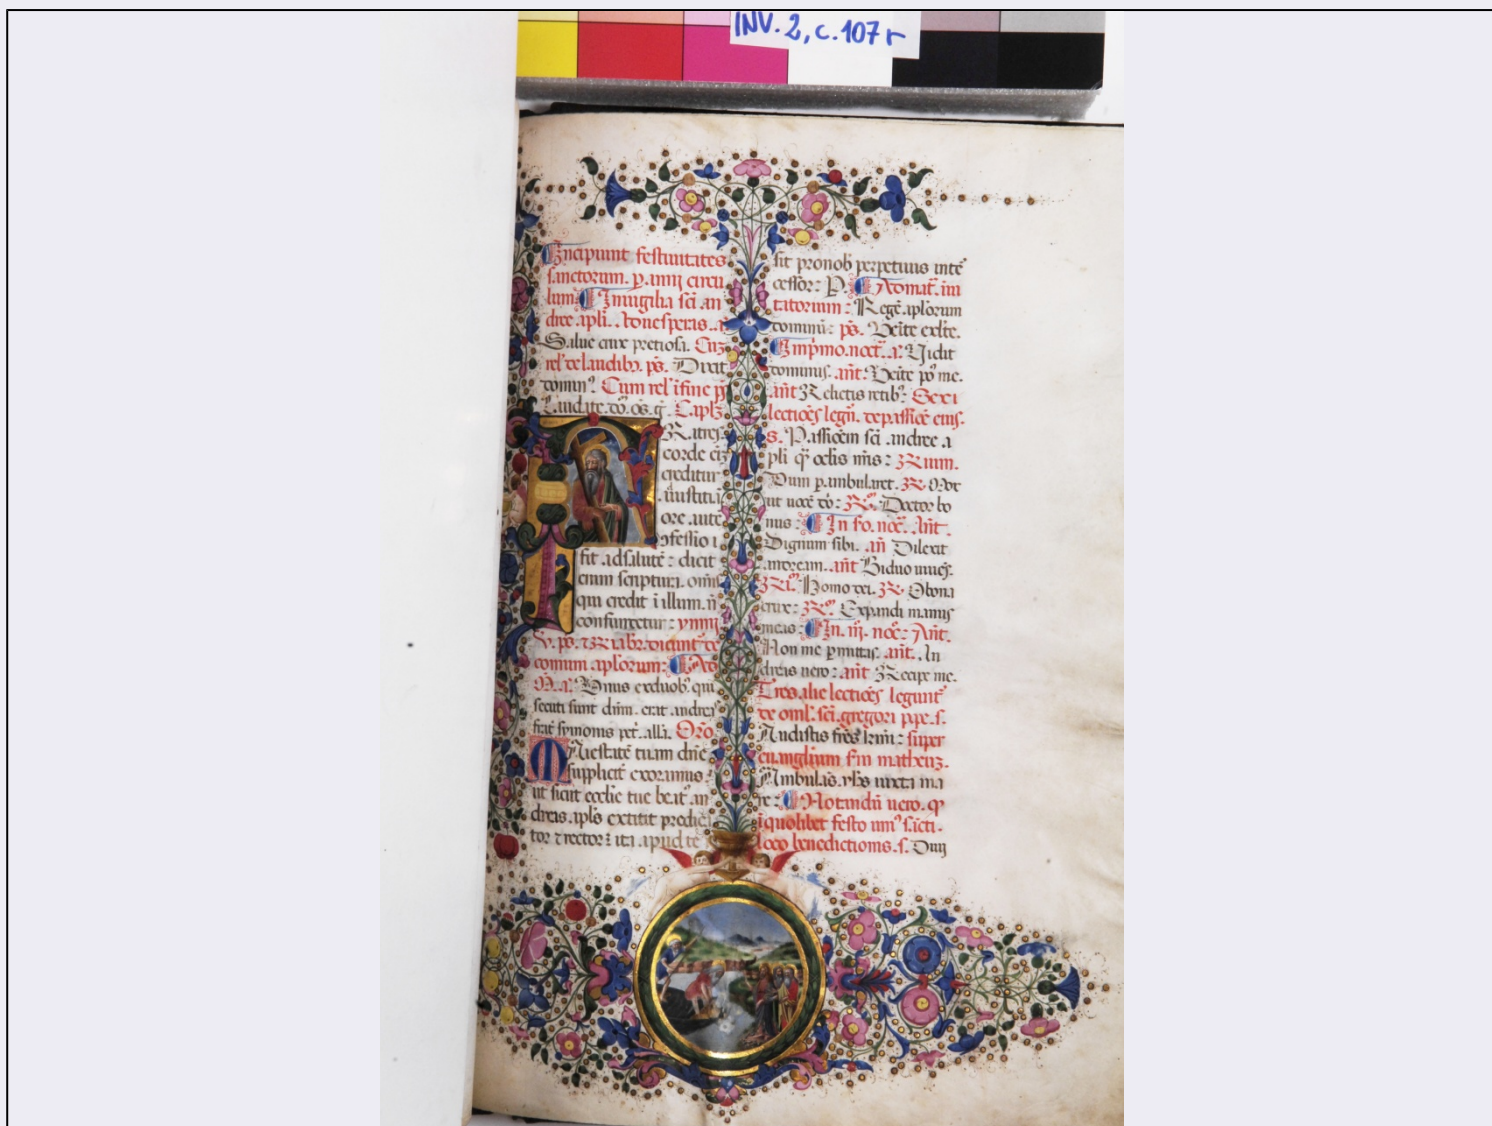 INV. 2, c. 107 r
Incipiunt festiuitates
sanctorum. p. anni circu
lum. In uigilia sci an
dree apli. bone speras. a
Salue crux pretiosa. Cuz
rel' de laudibꝫ. ps. Dixit
domin⁹. Cum rel' i fine ps
Laudate. dō. os. g. Caplꝫ
FRatres
corde eīz
creditur
ad iustitiā
ore aute
ɔfessio i
fit ad salutē: dicit
enim scriptura. omīs
qui credit i illum. n̄
confundetur: ymnꝰ
V. ps. dicunt de
comuni aplorum: Ad
M. a. Unus ex duobꝫ qui
secuti sunt dūm. erat andreas
frat̄ symonis pet. all'a. Orō
MAiestatē tuam dn̄e
suppliciť exoramus:
ut sicut ecclie tue beat⁹ an
dreas apl's extitit predica
tor ⁊ rector: ita apud te
sit pro nob̄ perpetuus inte
cessor: P. Ad mat. in
tatorium: Regē aplorum
dominū: ps. Ueīte exl'te.
In pīmo. noct. a. Uidit
dominus. ant Ueīte pꝰ me.
ant Relictis retibꝫ. Sex i
lectiōes legn̄. de passiōe eius.
S. Passiōem sci andree a
pli qꝫ oclis nr̄is: Rium.
Dum p ambularet. R Mox
ut uocē dō: R. Doctor bo
nus: In so. noc. Ant.
Dignum sibi. an Dilexit
andream. ant Biduo uiuēs.
R. Homo dei. R O bona
crux: R. Expandi manus
meas: In. iij. noc: Ant.
Non me pmittas. ant. An
dreas uero: ant Recipe me.
Tres alie lectiōes legunť
de oml'. sci. gregori ppe. s.
Audistis frēs krmi: super
euangelium sm matheuz.
Ambulās yhs iuxta ma
re: Notandū uero. qꝫ
i quolibet festo uniꝰ sācti.
loco benedictionis. s. Diui